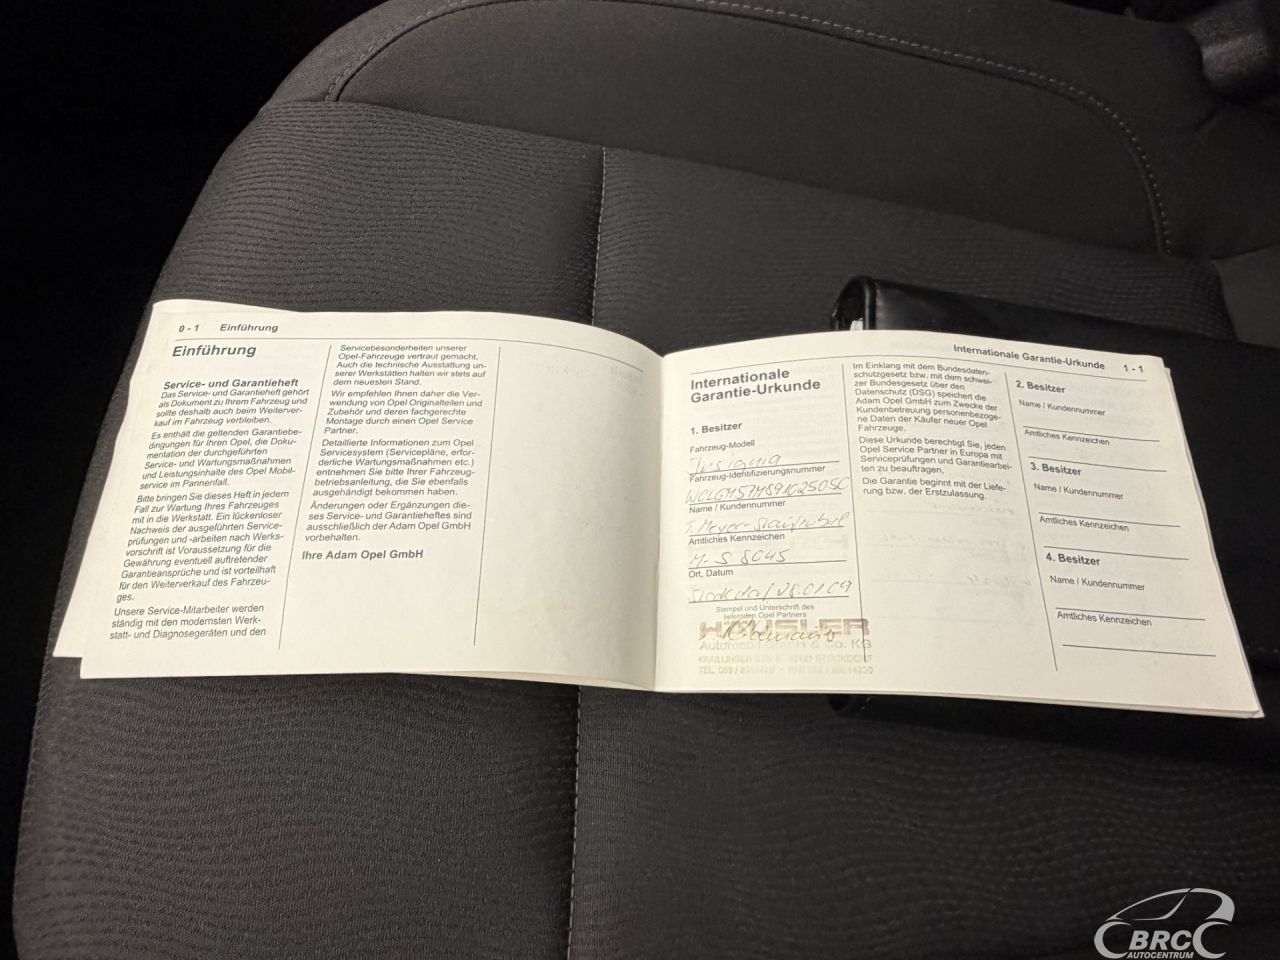 0 - 1 Einführung
Einführung
Service- und Garantieheft
Das Service- und Garantieheft gehört
als Dokument zu Ihrem Fahrzeug und
sollte deshalb auch beim Weiterver-
kauf im Fahrzeug verbleiben.
Es enthält die geltenden Garantiebe-
dingungen für Ihren Opel, die Doku-
mentation der durchgeführten
Service- und Wartungsmaßnahmen
und Leistungsinhalte des Opel Mobil-
service im Pannenfall.
Bitte bringen Sie dieses Heft in jedem
Fall zur Wartung Ihres Fahrzeuges
mit in die Werkstatt. Ein lückenloser
Nachweis der ausgeführten Service-
prüfungen und -arbeiten nach Werks-
vorschrift ist Voraussetzung für die
Gewährung eventuell auftretender
Garantieansprüche und ist vorteilhaft
für den Weiterverkauf des Fahrzeu-
ges.
Unsere Service-Mitarbeiter werden
ständig mit den modernsten Werk-
statt- und Diagnosegeräten und den
Servicebesonderheiten unserer
Opel-Fahrzeuge vertraut gemacht.
Auch die technische Ausstattung un-
serer Werkstätten halten wir stets auf
dem neuesten Stand.
Wir empfehlen Ihnen daher die Ver-
wendung von Opel Originalteilen und
Zubehör und deren fachgerechte
Montage durch einen Opel Service
Partner.
Detaillierte Informationen zum Opel
Servicesystem (Servicepläne, erfor-
derliche Wartungsmaßnahmen etc.)
entnehmen Sie bitte Ihrer Fahrzeug-
betriebsanleitung, die Sie ebenfalls
ausgehändigt bekommen haben.
Änderungen oder Ergänzungen die-
ses Service- und Garantieheftes sind
ausschließlich der Adam Opel GmbH
vorbehalten.
Ihre Adam Opel GmbH
Internationale Garantie-Urkunde 1 - 1
Internationale
Garantie-Urkunde
1. Besitzer
Fahrzeug-Modell
Insignia
Fahrzeug-Identifizierungsnummer
Name / Kundennummer
Amtliches Kennzeichen
M-S 8045
Ort, Datum
Stempel und Unterschrift des
liefernden Opel Partners
HÄUSLER
Automobil GmbH & Co. KG
Im Einklang mit dem Bundesdaten-
schutzgesetz bzw. mit dem schwei-
zer Bundesgesetz über den
Datenschutz (DSG) speichert die
Adam Opel GmbH zum Zwecke der
Kundenbetreuung personenbezoge-
ne Daten der Käufer neuer Opel
Fahrzeuge.
Diese Urkunde berechtigt Sie, jeden
Opel Service Partner in Europa mit
Serviceprüfungen und Garantiearbei-
ten zu beauftragen.
Die Garantie beginnt mit der Liefe-
rung bzw. der Erstzulassung.
2. Besitzer
Name / Kundennummer
Amtliches Kennzeichen
3. Besitzer
Name / Kundennummer
Amtliches Kennzeichen
4. Besitzer
Name / Kundennummer
Amtliches Kennzeichen
BRC
AUTOCENTRUM